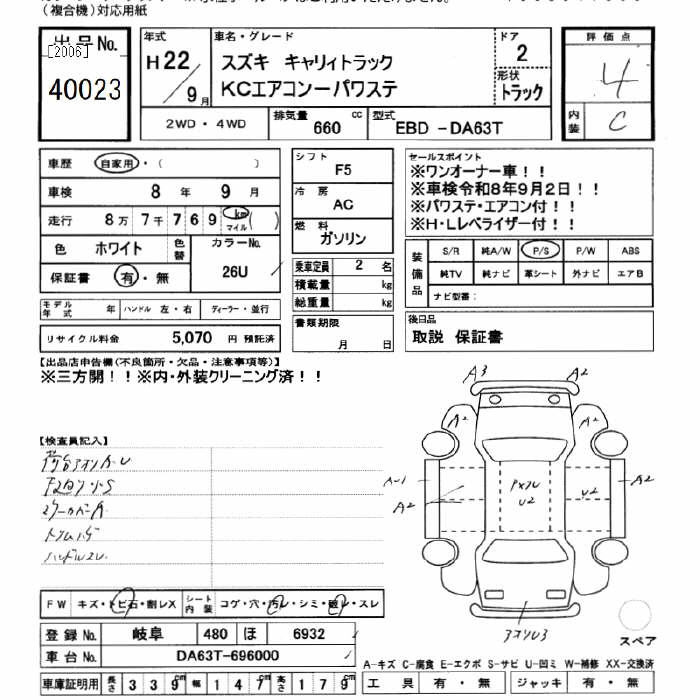 (複合機)対応用紙
出品No.
[2006]
40023
年式
H22/9月
車名・グレード
スズキ キャリィトラック
KCエアコンーパワステ
ドア
2
形状
トラック
評価点
4
内装
C
2WD・4WD
排気量
660
CC
型式
EBD -DA63T
車歴 自家用・( )
車検 8 年 9 月
走行 8万 7千 7 6 9 km マイル ( )
色 ホワイト
色替
カラーNo.
26U
保証書 有・無
モデル年式 年 ハンドル 左・右 ディーラー・並行
リサイクル料金 5,070 円 預託済
シフト
F5
冷房
AC
燃料
ガソリン
乗車定員 2 名
積載量 kg
総重量 kg
書類期限
月 日
セールスポイント
※ワンオーナー車!!
※車検令和8年9月2日!!
※パワステ・エアコン付!!
※H・Lレベライザー付!!
装備品
S/R 純A/W P/S P/W ABS
純TV 純ナビ 革シート 外ナビ エアB
ナビ型番:
後日品
取説 保証書
【出品店申告欄(不良箇所・欠品・注意事項等)】
※三方開!!※内・外装クリーニング済!!
【検査員記入】
A3
A2
A2
A2
A-1
A2
A2
U2
U2
スペア
FW キズ・トビ石・割レX
シート内装 コゲ・穴・汚レ・シミ・破レ・スレ
登録No. 岐阜 480 ほ 6932
車台No. DA63T-696000
車庫証明用 長さ 339cm 幅 147cm 高さ 179cm
A-キズ C-腐食 E-エクボ S-サビ U-凹ミ W-補修 XX-交換済
工具 有・無 ジャッキ 有・無